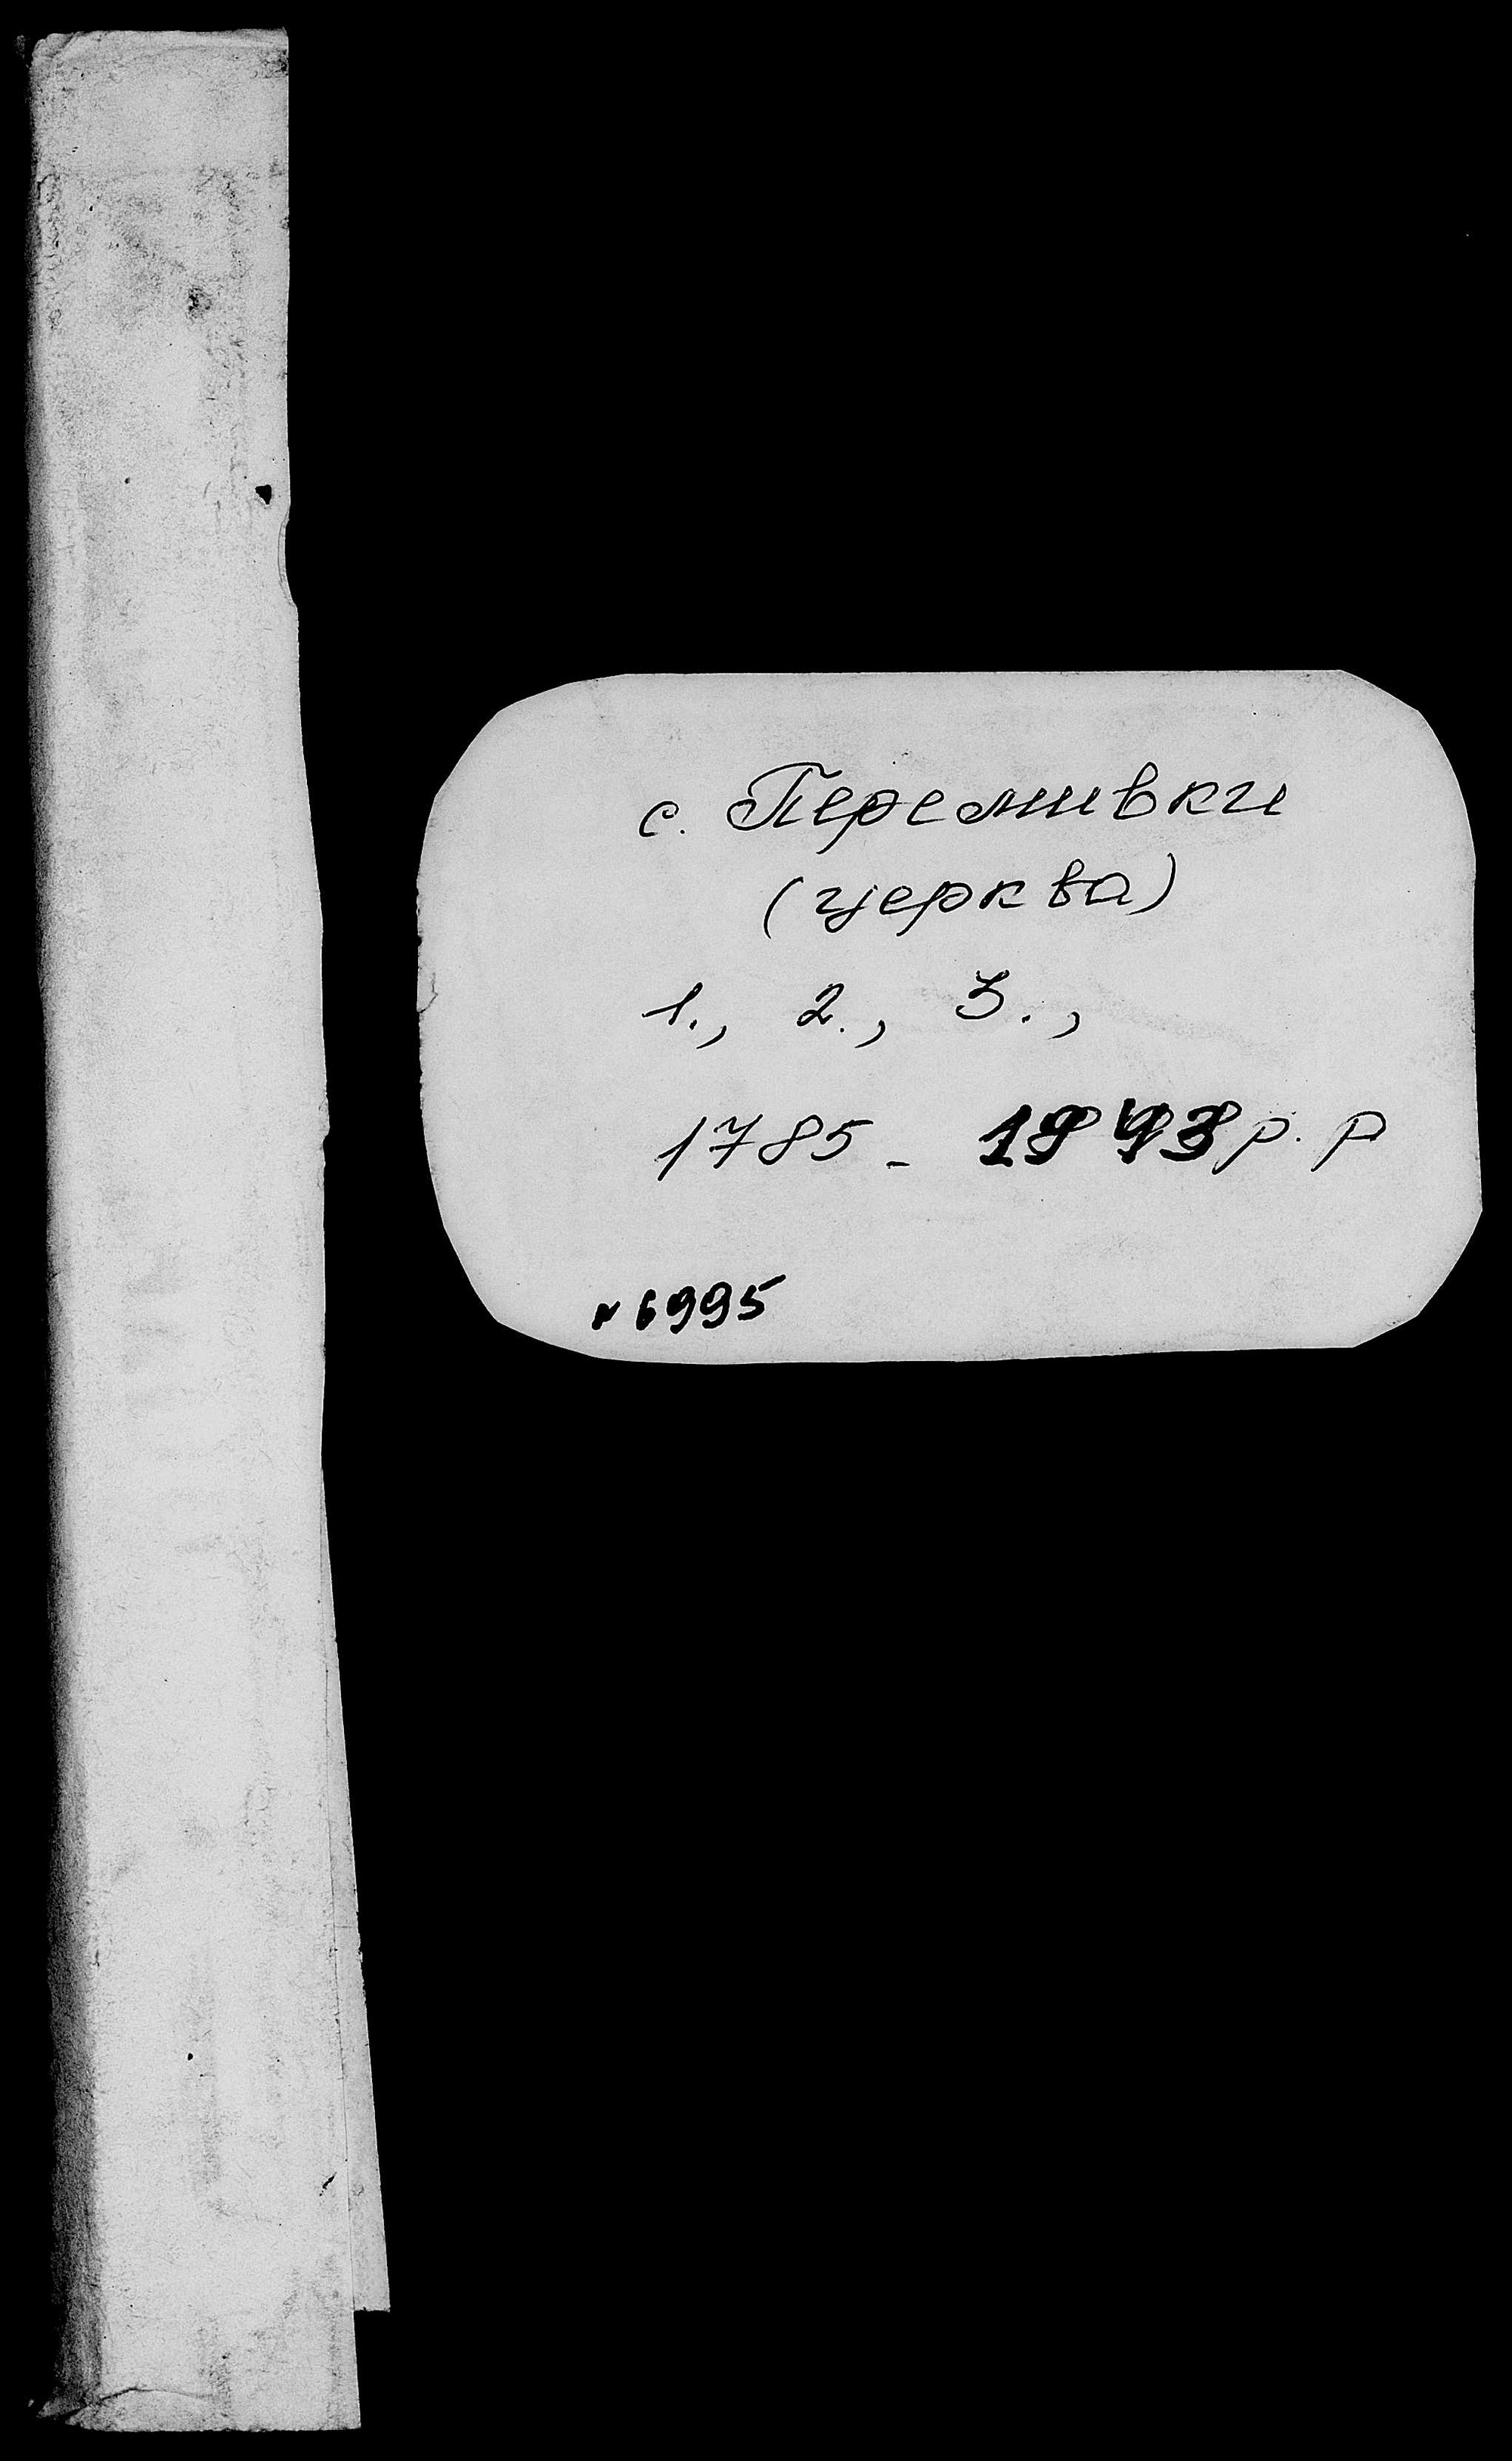 с. Перемивки
(церква)
1., 2., 3.,
1785 - р. р
N 6995